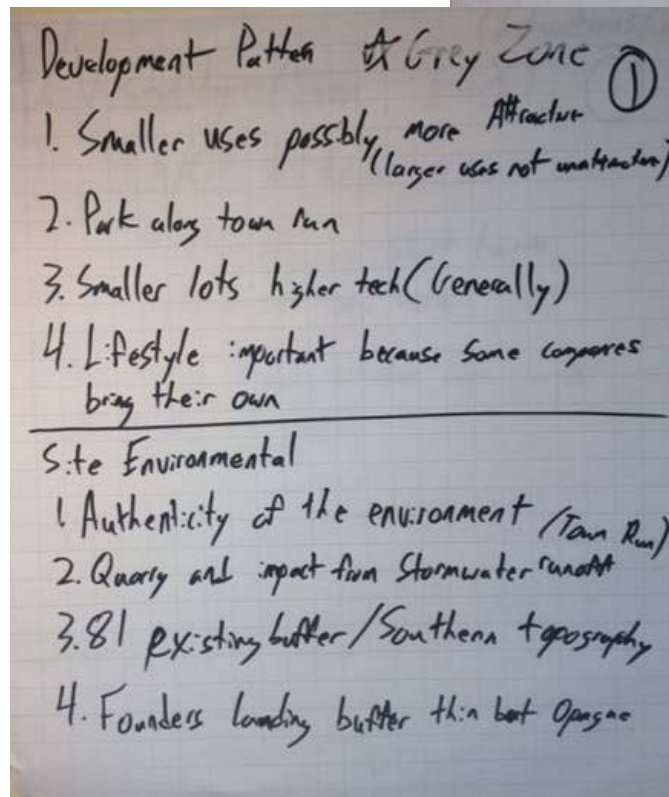 Development Patten ☆ Grey Zone ①
1. Smaller uses possibly more Attractive
(larger uses not unattractive)
2. Park along town run
3. Smaller lots higher tech (Generally)
4. Lifestyle important because some companies
bring their own
Site Environmental
1 Authenticity of the environment (Town Run)
2. Quarry and impact from Stormwater runoff
3. 81 existing buffer/Southern topography
4. Founders landing buffer thin but Opaque